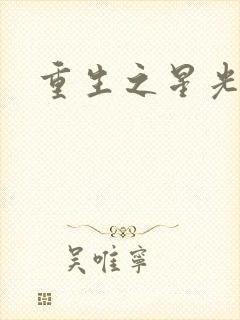 重生之星光
吴唯宁